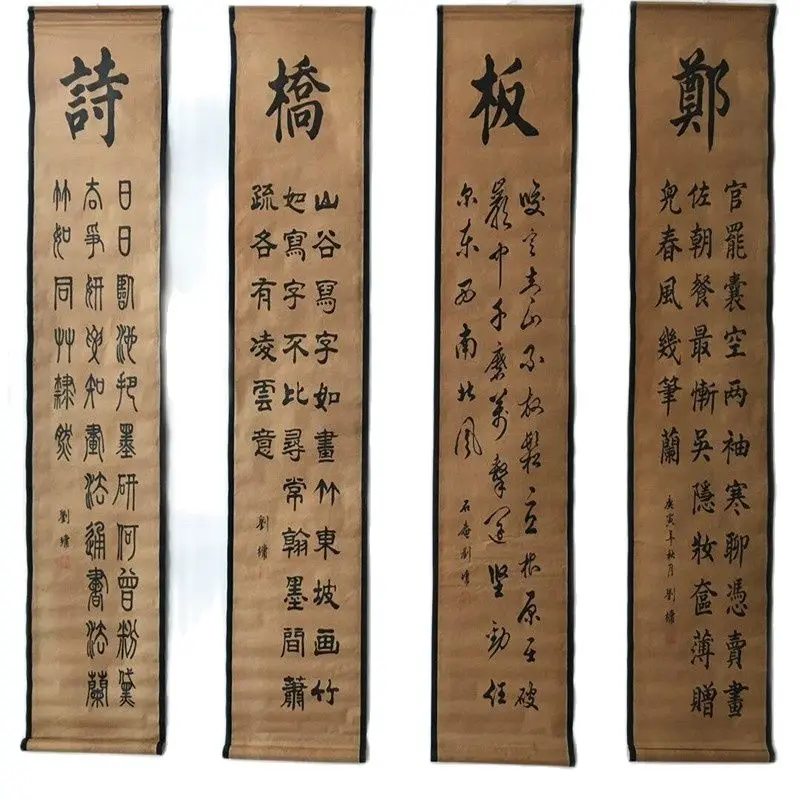 鄭
官罷囊空两袖寒聊憑賣畫
佐朝餐最慚吳隱妝奩薄贈
兒春風幾筆蘭
庚寅年秋月 劉墉
板
咬定青山不放鬆立根原在破
巖中千磨萬擊還堅勁任
尔東西南北風
石庵劉墉
橋
山谷寫字如畫竹東坡画竹
如寫字不比尋常翰墨間蕭
疏各有凌雲意
劉墉
詩
日日臨池把墨研何曾粉黛
去爭妍要知畫法通書法蘭
竹如同艸隸然
劉墉